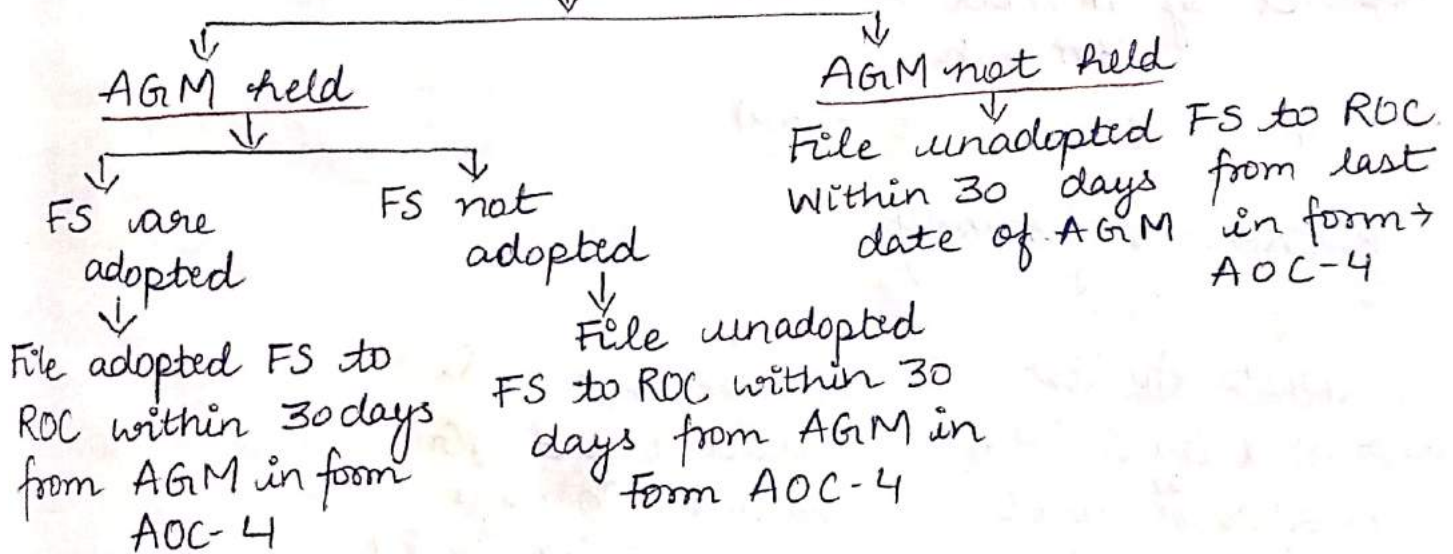 AGM held
FS are
adopted
File adopted FS to
ROC within 30 days
from AGM in form
AOC-4
FS not
adopted
File unadopted
FS to ROC within 30
days from AGM in
Form AOC-4
AGM not held
File unadopted FS to ROC.
Within 30 days from last
date of AGM in form→
AOC-4